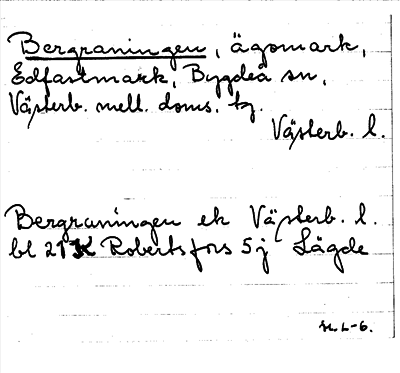 Bergraningen, ägomark,
Edfastmark, Bygdeå sn,
Västerb. mell. doms. tg.
Västerb. l.
Bergraningen ek Västerb. l.
bl 21K Robertsfors 5j Lägde